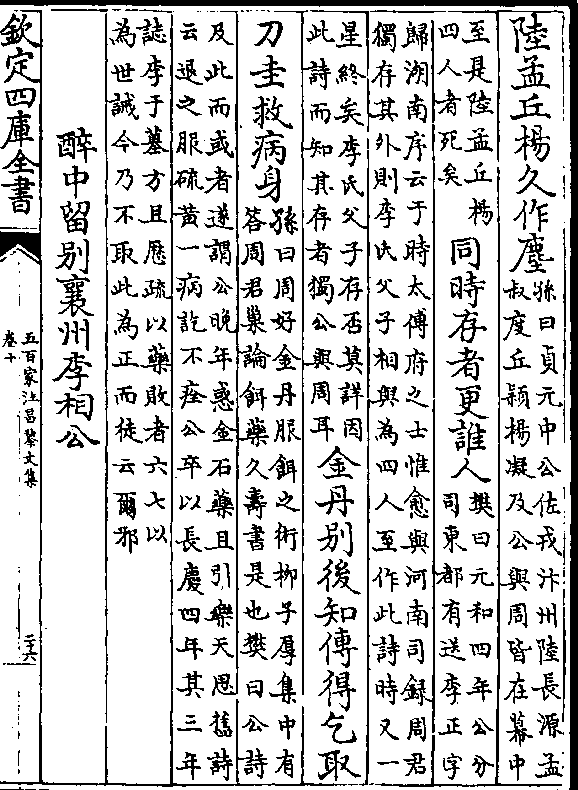 陸孟丘楊久作塵
孫曰貞元中公佐戎汴州陸長源孟
叔度丘穎楊凝及公與周皆在幕中
至是陸孟丘楊
四人者死矣
同時存者更誰人
樊曰元和四年公分
司東都有送李正字
歸湖南序云于時太傅府之士惟愈與河南司録周君
獨存其外則李氏父子相與為四人至作此詩時又一
星終矣李氏父子存否莫詳因
此詩而知其存者獨公與周耳
金丹别後知傳得乞取
刀圭救病身
孫曰周好金丹服餌之術栁子厚集中有
答周君巢論餌藥久壽書是也樊曰公詩
及此而或者遂謂公晚年惑金石藥且引樂天思舊詩
云退之服硫黄一病訖不痊公卒以長慶四年其三年
誌李于墓方且歴疏以藥敗者六七以
為世誡今乃不取此為正而徒云爾邪
醉中留别襄州李相公
欽定四庫全書
五百家注昌黎文集
卷十
二六